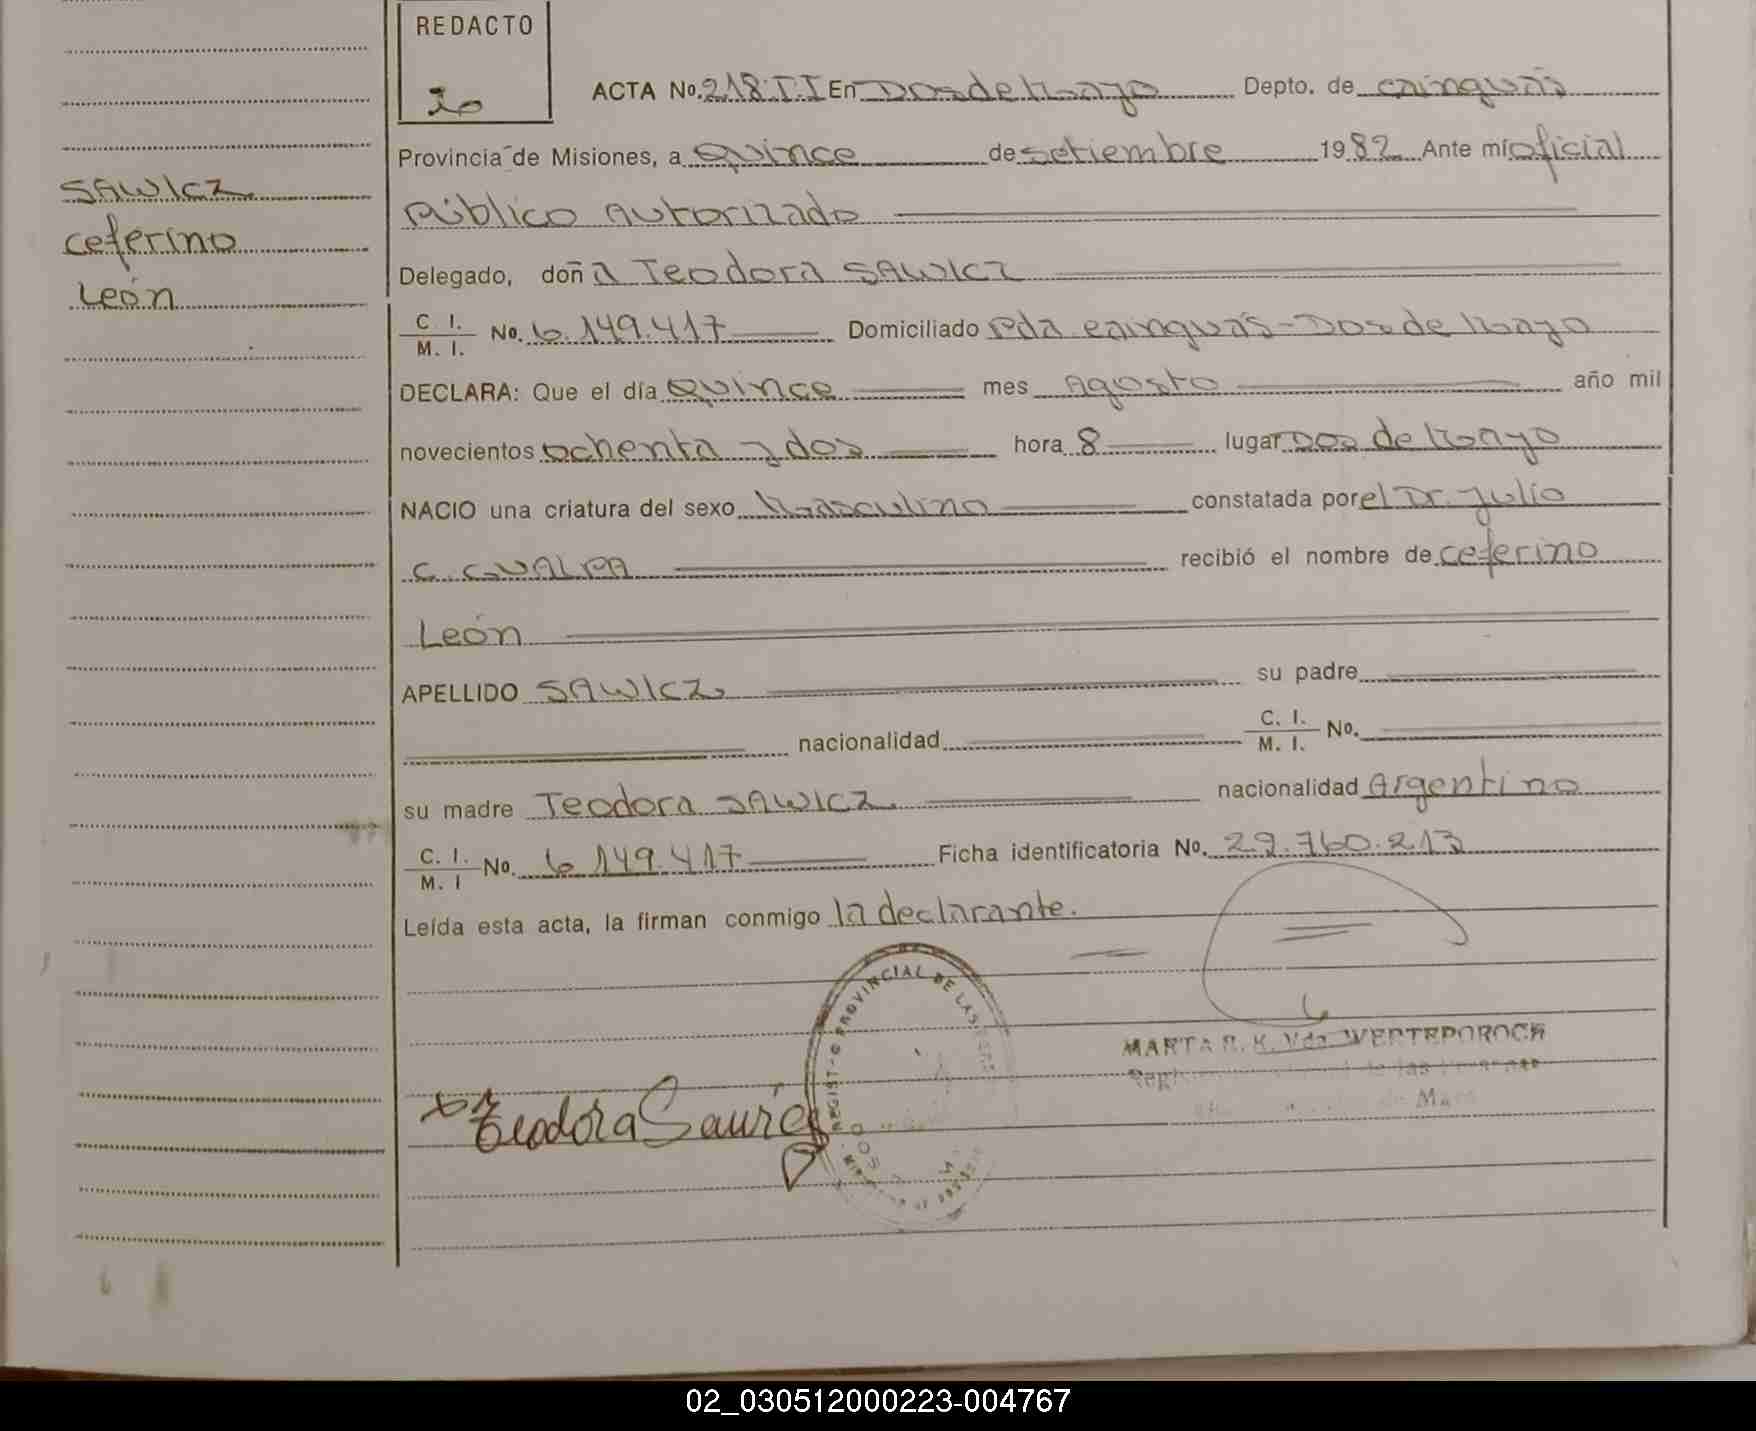 REDACTO
ACTA No. 218.T.I En Dos de Mayo Depto. de cainguás
Provincia de Misiones, a quince de setiembre 1982 Ante mí oficial
SAWICZ
público Autorizado
ceferino
Delegado, doña Teodora SAWICZ
León
C. I.
M. I. No. 6.149.417 Domiciliado Pda cainguás - Dos de Mayo
DECLARA: Que el día quince mes Agosto año mil
novecientos ochenta y dos hora 8 lugar Dos de Mayo
NACIO una criatura del sexo Masculino constatada por el Dr. Julio
C. GUALPA recibió el nombre de ceferino
León
APELLIDO SAWICZ su padre
nacionalidad C. I.
M. I. No.
su madre Teodora SAWICZ nacionalidad Argentino
C. I.
M. I No. 6 149.417 Ficha identificatoria No. 29.760.213
Leída esta acta, la firman conmigo la declarante.
PROVINCIAL DE LAS
MARTA R. K. Vda WERTEPOROCH
Teodora Sawicz
02_030512000223-004767